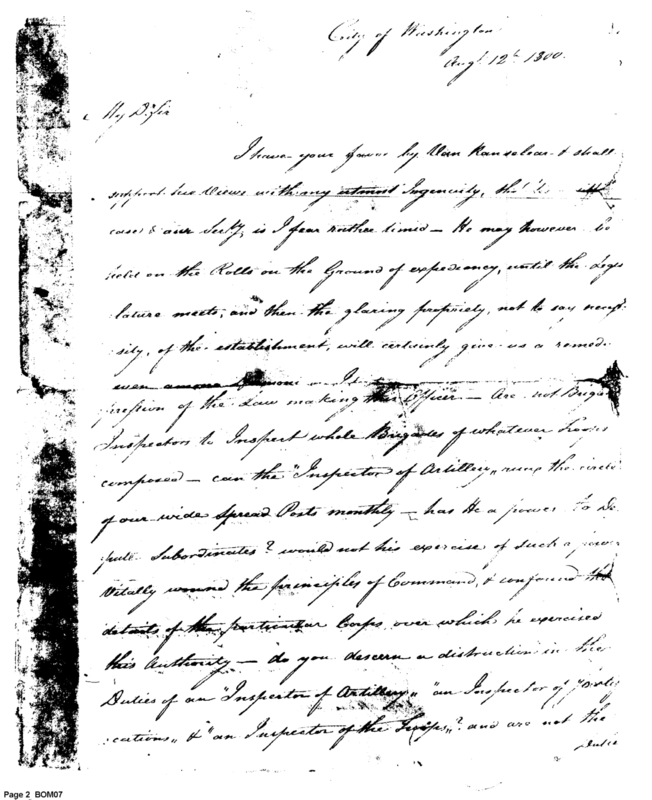 City of Washington
Augt. 12th 1800.
My D. Sir
I have your favor by Van Ranselear & shall
support his Views with any utmost Ingenuity, tho'
case & our Secty, is I fear rather timid — He may however be
held on the Rolls on the Ground of expediency, until the Legis
lature meets, and then the glaring propriety, not to say neces-
sity, of the establishment, will certainly give us a remedy
even among
of the Law making the Officer — Are not Brigade
Inspectors to Inspect whole Brigades of whatever Troops
composed — can the "Inspector of Artillery" run the circle
of our wide spread Posts monthly — has He a power to De
pute Subordinates? would not his exercise of such a power
Vitally wound the principles of Command, & confound the
details of the particular Corps over which he exercised
this Authority — do you descern a distruction in the
Duties of an "Inspector of Artillery" "an Inspector of Fortifi
cations" & "an Inspector of the Troops"? and are not the
Dutie
Page 2 BOM07